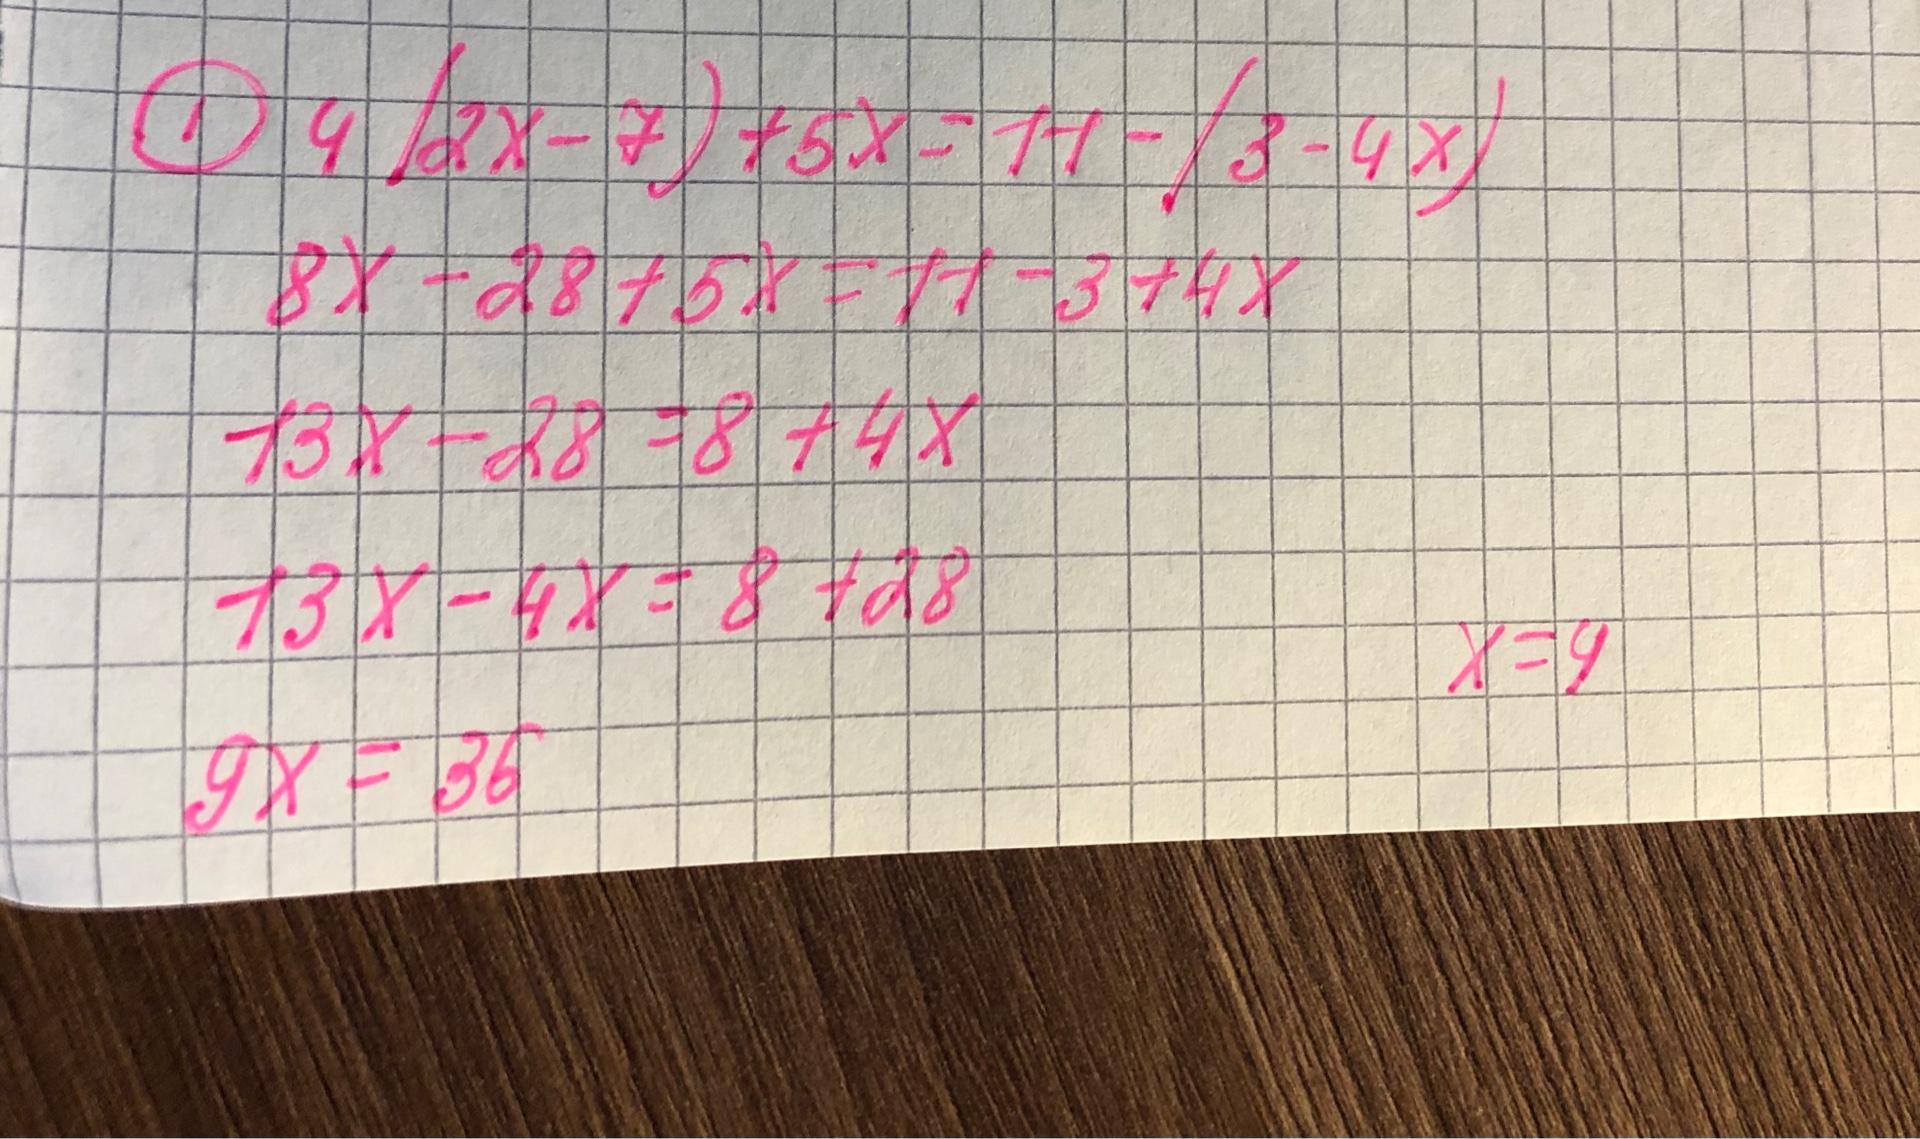 ① 4(2x-7)+5x=11-(3-4x)
8x-28+5x=11-3+4x
13x-28=8+4x
13x-4x=8+28
9x=36
x=4